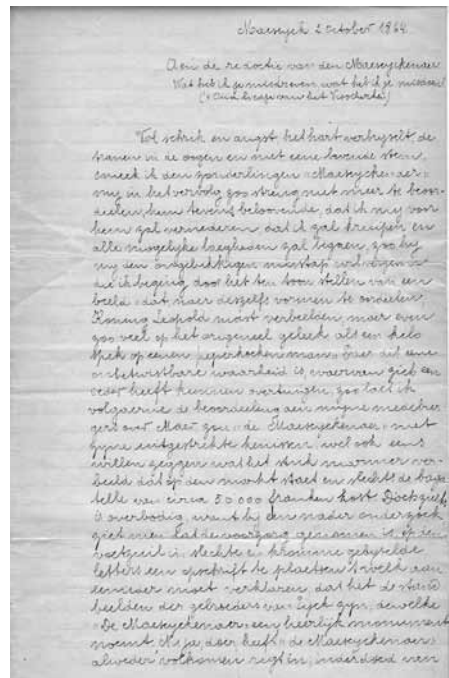 Maeseyck 2 October 1864
Aen de redactie van den Maeseyckenaer
Wat heb ik je misdreven, wat heb ik je misdaen!
het
Vol schrik en angst het hart verkryselt, de
tranen in de oogen en met eene bevende stem,
smeek ik den zonderlingen "Maeseyckenaer"
my in het vervolg zoo streng niet meer te beoor-
deelen, hem tevens belovende, dat ik my voor
hem zal vernederen, dat ik zal kruipen en
alle mogelyke laegheden zal begaen, zoo hy
my den ongelukkigen misstap
die ik beging, door het ten toon stellen van een
beeld dat naer deszelfs vormen te oordeelen,
Koning Leopold moest verbeelden, maer even
zoo veel op het origineel geleek als een kelo
spek op eenen peperkoeken man. Daer dit eene
onbetwistbare waarheid is, waervan zich een
ieder heeft kunnen overtuigen, zoo laet ik
volgaerne de beoordeeling aen myne medebur-
gers over. Maer zou "de Maeseyckenaer" met
zyne uitgestrekte kennissen, wel ook eens
willen zeggen wat het stuk marmer ver-
beeld dat op den markt staet en slechts de baga-
telle van circa 50 000 franken kost
O overbodig, want by een nader onderzoek
ziet men dat de voorzorg genomen is, op een
voetzuil in slechte en kromme gebeytelde
letters een opschrift te plaetsen 't welk aen
eenieder moet verklaren, dat het de stand
beelden der gebroeders van Eyck zyn, dewelke
"De Maeseyckenaer" een heerlyk monument
noemt. N ja, daer heeft "de Maeseyckenaer"
alweder volkomen regt in, van